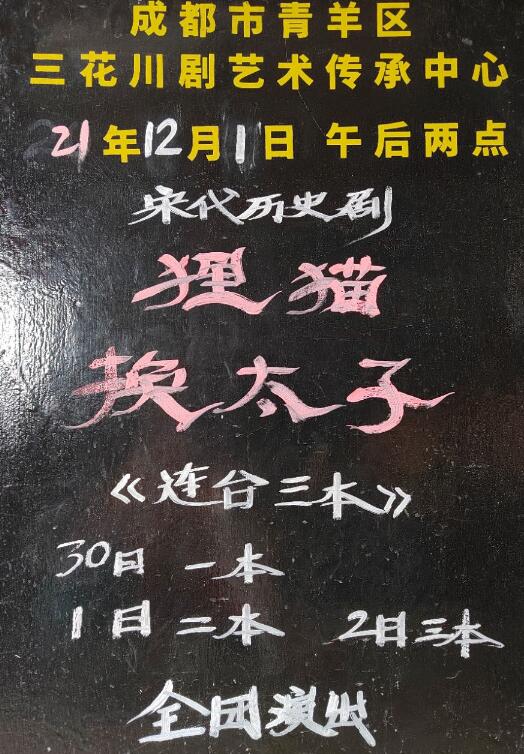 成都市青羊区
三花川剧艺术传承中心
21年12月1日 午后两点
宋代历史剧
狸猫
换太子
《连台三本》
30日 一本
1日 二本 2日三本
全团演出